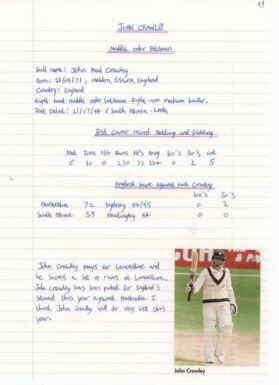 JOHN CRAWLEY
Middle order Batsman
Full name: John Paul Crawley
Born: 21/09/71, Maldon, Essex, England
Country: England
Right hand middle order batsman. Right-arm medium bowler.
Test Debut: 21/7/94 v South Africa - Lords
Test Career record Batting and Fielding
Mat Inns N/O Runs H's Avg 100's 50's cat
5 10 0
0 2 5
England have against each Country
100's 50's
Australia 72 Sydney 94/95 0 2
South Africa 38 Headingley 94 0 0
John Crawley plays for Lancashire and
he scores a lot of runs at Lancashire.
John Crawley has been picked for England's
squad this year against Australia. I
think John Crawley will do very well this
year.
John Crawley